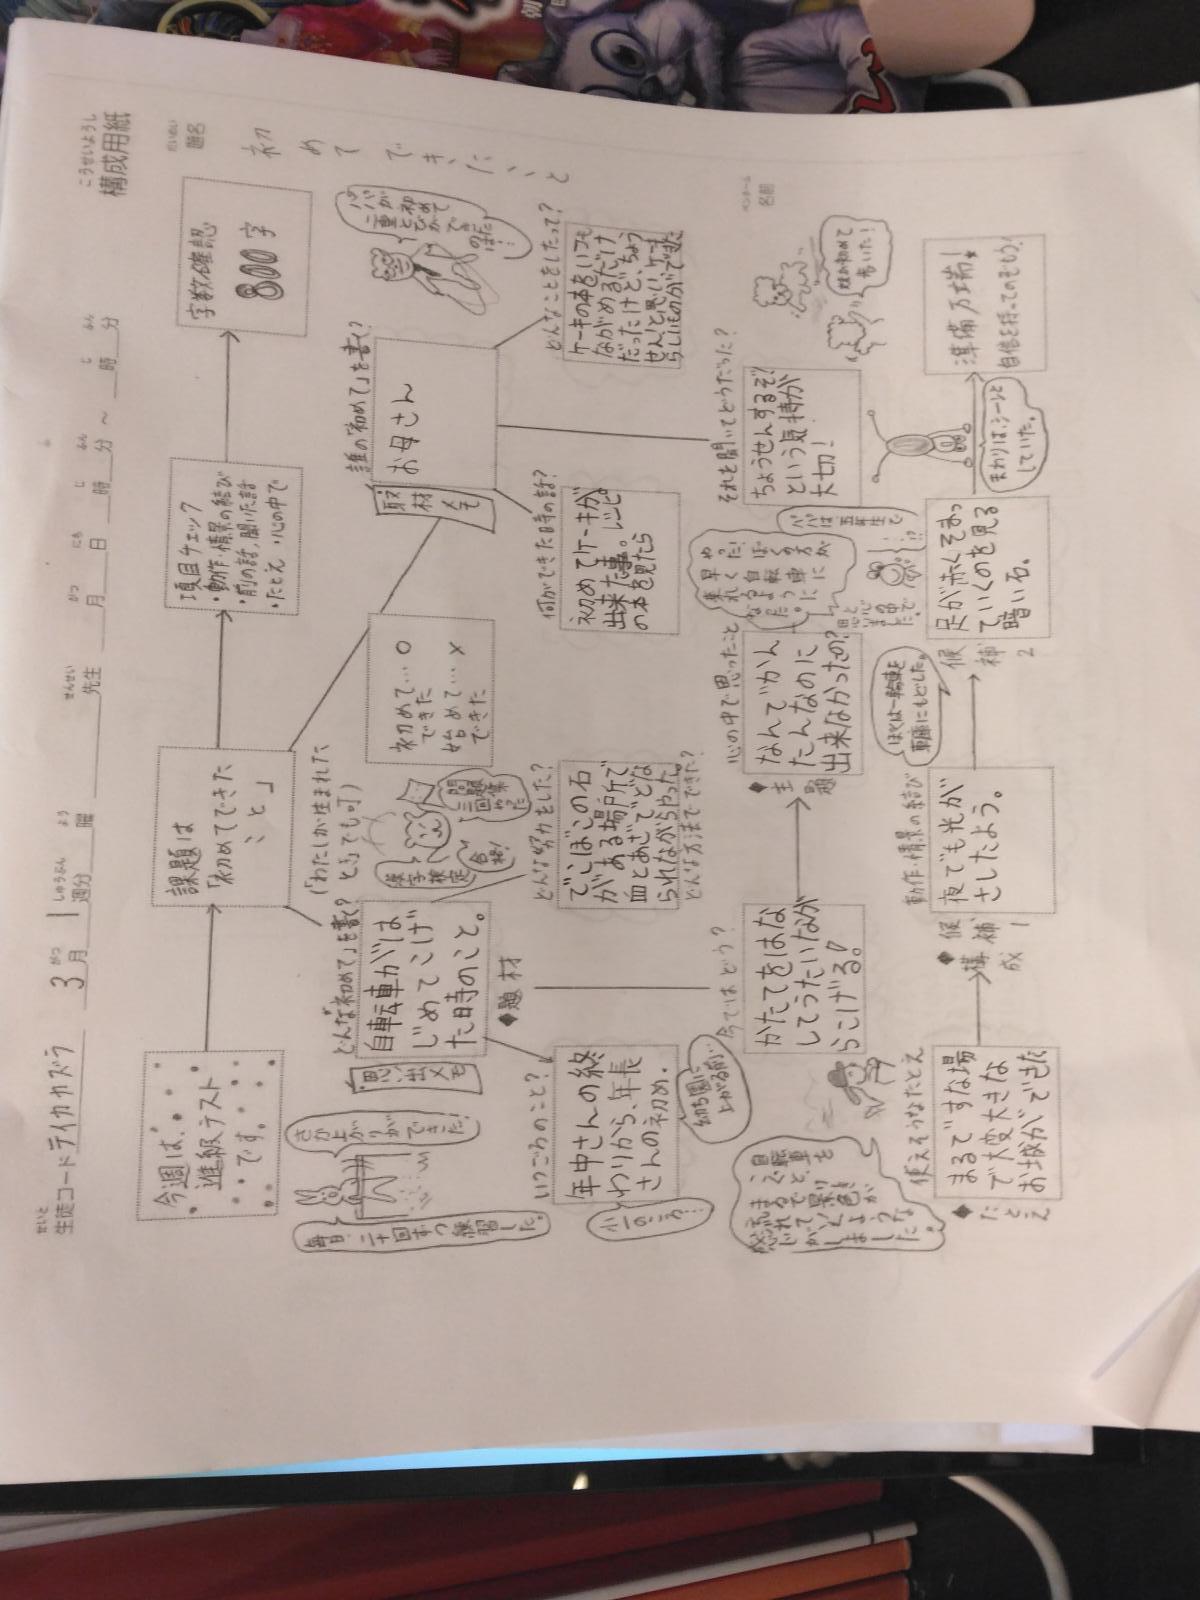 こうせいようし
構成用紙
せいと
生徒コード テイカカズラ 3月 1週分 曜 先生 月 日 時 分 ～ 時 分
がつ しゅうぶん よう せんせい がつ にち じ ふん じ ふん
だいめい
題名
初めてできたこと
ペンネーム
名前
今週は、
進級テスト
です。
課題は
「初めてできた
こと」
(「わたしが生まれた
とき」でも可)
項目チェック
・動作・情景の結び
・前の話、聞いた話
・たとえ ・心の中で
字数確認
800字
毎日、二十回ずつ練習した。
さか上がりができた!
思出メモ
どんな「初めて」を書く?
自転車がは
じめてこげ
た時のこと。
◆題材
漢字検定
合格!
問題集
三回やった
初めて…○
できた
始めて…×
できた
取材メモ
誰の「初めて」を書く?
お母さん
パパが
初めて
二重とびが
できた
のは
…
いつごろのこと?
年中さんの終
わりから、年長
さんの初め。
小一のころ…
幼ち園に
上がる前…
どんな努力をした?
でこぼこの石
がある場所で
血とあざでどな
られながらやった。
どんな方法でできた?
何ができた時の話?
初めてケーキが
出来た事。にじ
の本を見たら
どんなことをしたって?
ケーキの本をいつも
ながめるだけ
だったけど、ちょう
せん!と思い、ケーキ
らしいものができた
今ではどう?
かたてをはな
してうたいなが
らこげる♪
心の中で思ったこと
◆主題
なんでかん
たんなのに
出来なかったの?
やった!ぼくの方が
早く自転車に
乗れるように
なった。
と心の中で
思いました。
パパは五年生で
…!?
それを聞いてどうだった?
ちょうせんするぞ!
という気持が
大切!
妹が初めて
歩いた!
使えそうなたとえ
◆たとえ
まるですな場
で大変大きな
お城ができた
◆構成
動作・情景の結び
候補1
夜でも光が
さしたよう。
ぼくは一輪車を
車庫にもどした。
候補2
足が赤くそまっ
ていくのを見る
暗い石。
まわりは、シーンと
していた。
準備万端!
自信を持ってのぞもう!